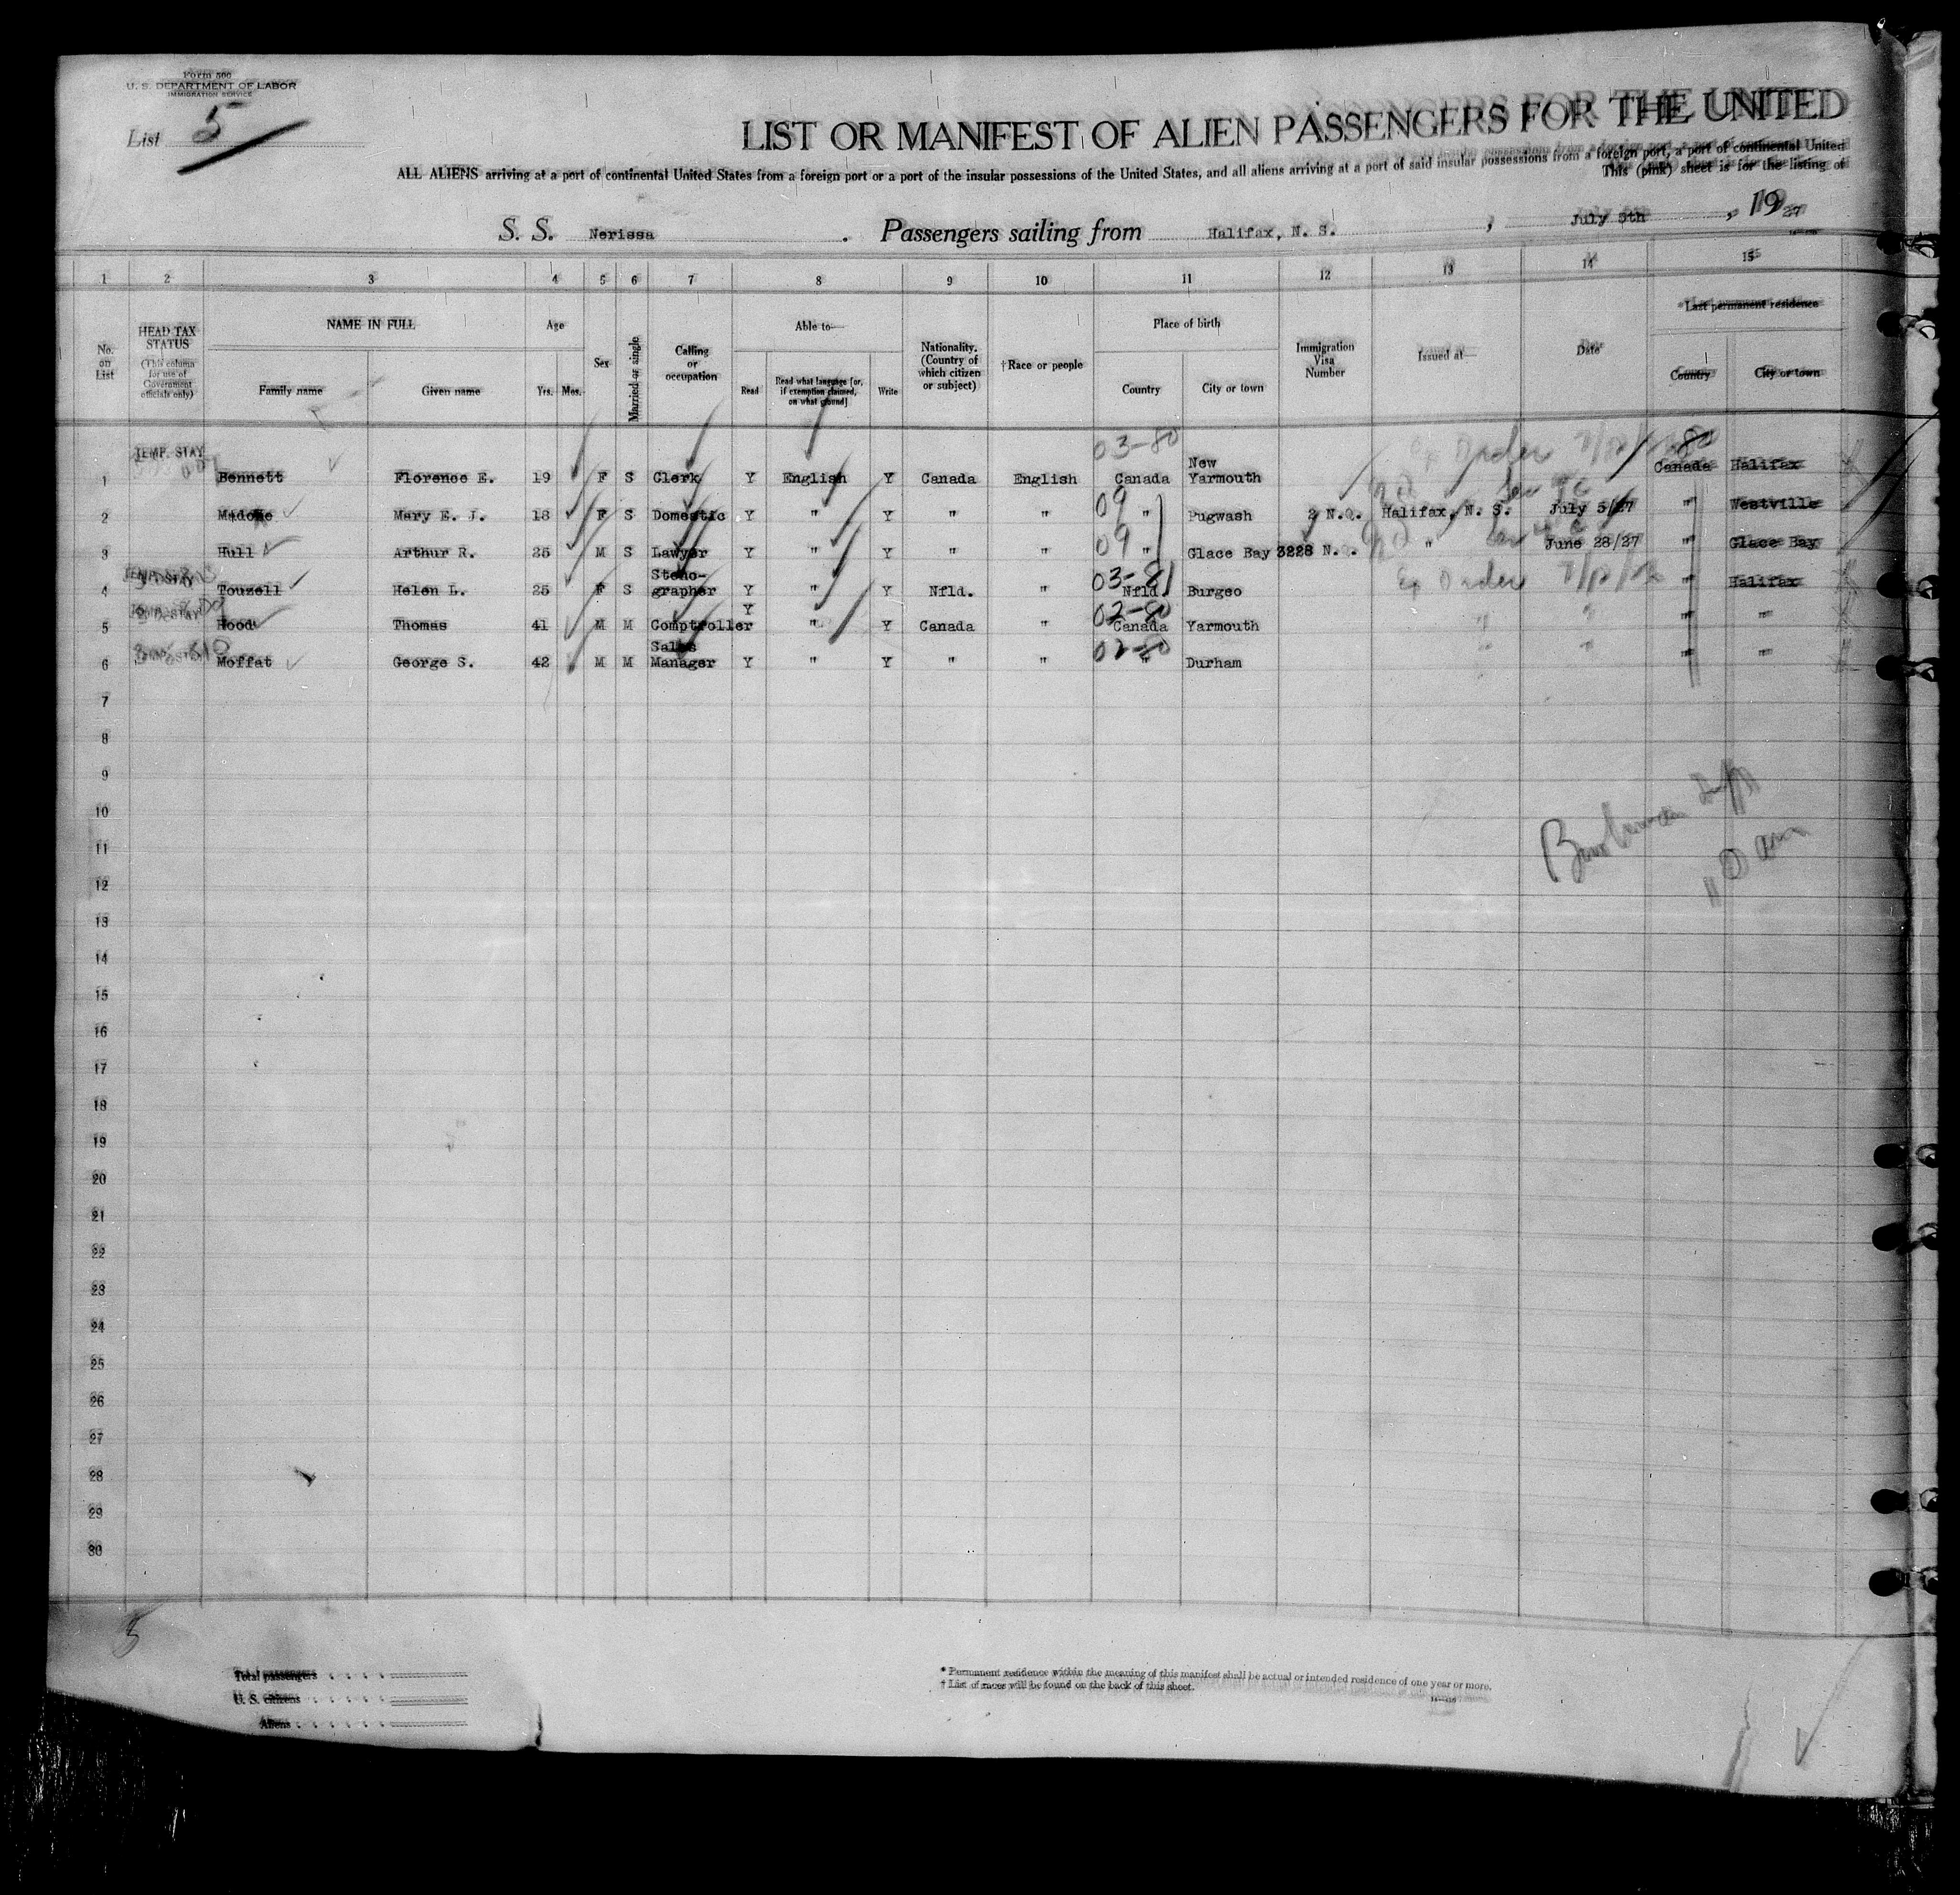 Form 500
U. S. DEPARTMENT OF LABOR
IMMIGRATION SERVICE
List 5
LIST OR MANIFEST OF ALIEN PASSENGERS FOR THE UNITED
ALL ALIENS arriving at a port of continental United States from a foreign port or a port of the insular possessions of the United States, and all aliens arriving at a port of said insular possessions from a foreign port, a port of continental United
This (pink) sheet is for the listing of
S. S. Nerissa . Passengers sailing from Halifax, N. S. , July 5th , 1927
1 2 3 4 5 6 7 8 9 10 11 12 13 14 15
No. on List
HEAD TAX STATUS (This column for use of Government officials only)
NAME IN FULL Family name Given name
Age Yrs. Mos.
Sex
Married or single
Calling or occupation
Able to— Read Read what language [or, if exemption claimed, on what ground] Write
Nationality. (Country of which citizen or subject)
†Race or people
Place of birth Country City or town
Immigration Visa Number
Issued at—
Date
*Last permanent residence Country City or town
TEMP. STAY 03-80 80
1 Bennett Florence E. 19 F S Clerk Y English Y Canada English Canada New Yarmouth Canada Halifax
2 Mary E. J. 18 F S Domestic Y " Y " " 09 " Pugwash 2 N.Q. Halifax, N. S. July 5/27 " Westville
3 Hull Arthur R. 25 M S Lawyer Y " Y " " 09 " Glace Bay 3228 N. . " June 28/27 " Glace Bay
4 TEMP. STAY Touzell Helen L. 25 F S Steno-grapher Y " Y Nfld. " 03-81 Nfld. Burgeo Ex Order " Halifax
5 Hood Thomas 41 M M Comptroller Y " Y Canada " 02-80 Canada Yarmouth " " " "
6 Moffat George S. 42 M M Sales Manager Y " Y " " 02-80 " Durham " " " "
7
8
9
10
11
12
13
14
15
16
17
18
19
20
21
22
23
24
25
26
27
28
29
30
5
Total passengers
U. S. citizens
Aliens
* Permanent residence within the meaning of this manifest shall be actual or intended residence of one year or more.
† List of races will be found on the back of this sheet.